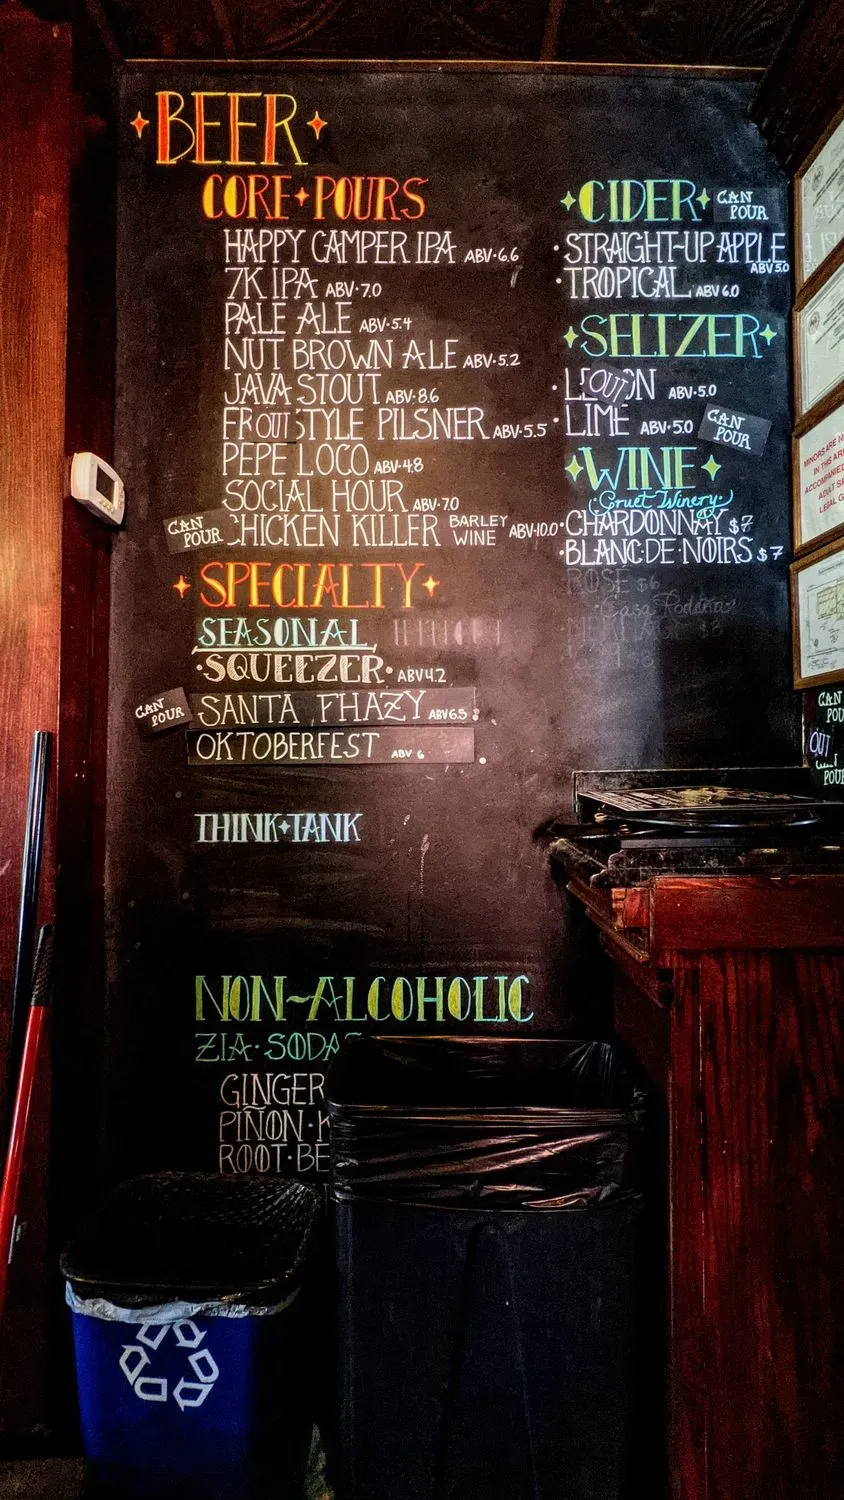 BEER
CORE POURS
HAPPY CAMPER IPA ABV·6.6
7K IPA ABV·7.0
PALE ALE ABV·5.4
NUT BROWN ALE ABV·5.2
JAVA STOUT ABV·8.6
FR OUT STYLE PILSNER ABV·5.5
PEPE LOCO ABV·4.8
SOCIAL HOUR ABV·7.0
CAN POUR CHICKEN KILLER BARLEY WINE ABV·10.0
SPECIALTY
SEASONAL
·SQUEEZER· ABV 4.2
CAN POUR SANTA FHAZY ABV 6.5
OKTOBERFEST ABV 6
THINK TANK
NON~ALCOHOLIC
ZIA·SODAS
GINGER
PIÑON·K
ROOT·BE
CIDER CAN POUR
·STRAIGHT-UP APPLE
ABV 5.0
·TROPICAL ABV 6.0
SELTZER
·LE OUT ON ABV·5.0
·LIME ABV·5.0 CAN POUR
WINE
·Gruet Winery·
·CHARDONNAY $7
·BLANC·DE·NOIRS $7
ROSE $6
Casa Rodeña
$8
MINORS ARE NO
IN THIS AREA
ACCOMPANIED
ADULT
LEGAL G
CAN
POU
OUT
POUR